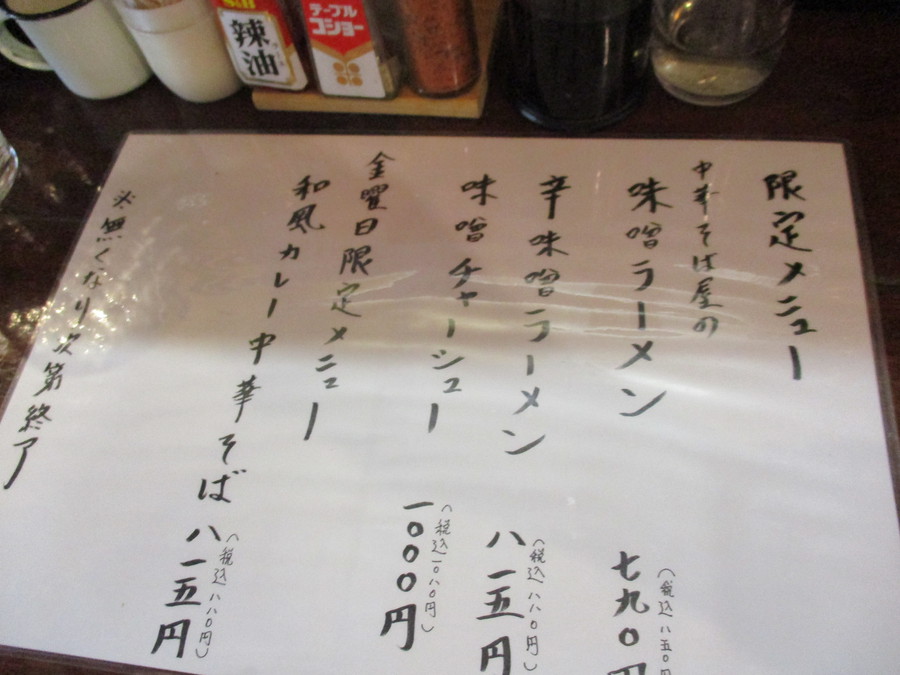 S&B
辣油
テーブル
コショー
限定メニュー
中華そば屋の
味噌ラーメン
(税込八五〇円
七九〇円
辛味噌ラーメン
(税込八八〇円)
八一五円
味噌チャーシュー
(税込一〇八〇円)
一〇〇〇円
金曜日限定メニュー
和風カレー中華そば
(税込八八〇円)
八一五円
※無くなり次第終了